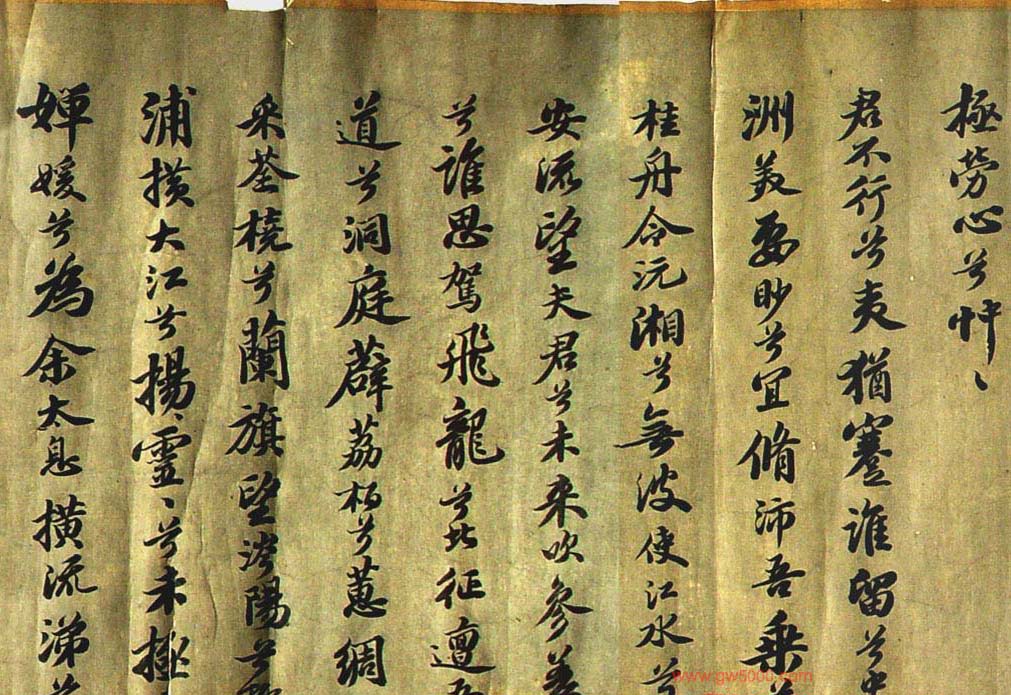 極勞心兮忡〻
君不行兮夷猶蹇誰留兮中
洲美要眇兮宜脩沛吾乘
桂舟令沅湘兮無波使江水兮
安流望夫君兮未来吹參差
兮誰思駕飛龍兮北征邅吾
道兮洞庭薜荔栢兮蕙綢
采荃橈兮蘭旗望涔陽兮
浦横大江兮揚〻靈〻兮未極
嬋媛兮為余太息橫流涕
www.gw5000.com